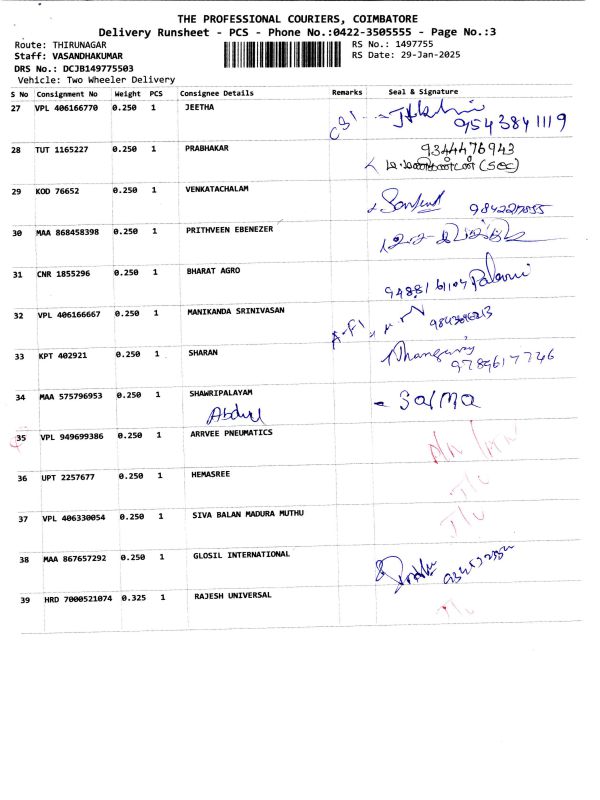 THE PROFESSIONAL COURIERS, COIMBATORE
Delivery Runsheet - PCS - Phone No.:0422-3505555 - Page No.:3
Route: THIRUNAGAR RS No.: 1497755
Staff: VASANDHAKUMAR RS Date: 29-Jan-2025
DRS No.: DCJB149775503
Vehicle: Two Wheeler Delivery
S No Consignment No Weight PCS Consignee Details Remarks Seal & Signature
27 VPL 406166770 0.250 1 JEETHA 9543841119
28 TUT 1165227 0.250 1 PRABHAKAR 9344476943
(Sec)
29 KOD 76652 0.250 1 VENKATACHALAM
30 MAA 868458398 0.250 1 PRITHVEEN EBENEZER
31 CNR 1855296 0.250 1 BHARAT AGRO
32 VPL 406166667 0.250 1 MANIKANDA SRINIVASAN
33 KPT 402921 0.250 1 SHARAN
9789617746
34 MAA 575796953 0.250 1 SHAWRIPALAYAM - Salma
Abdul
35 VPL 949699386 0.250 1 ARRVEE PNEUMATICS
36 UPT 2257677 0.250 1 HEMASREE
37 VPL 406330054 0.250 1 SIVA BALAN MADURA MUTHU
38 MAA 867657292 0.250 1 GLOSIL INTERNATIONAL
39 HRD 7000521074 0.325 1 RAJESH UNIVERSAL